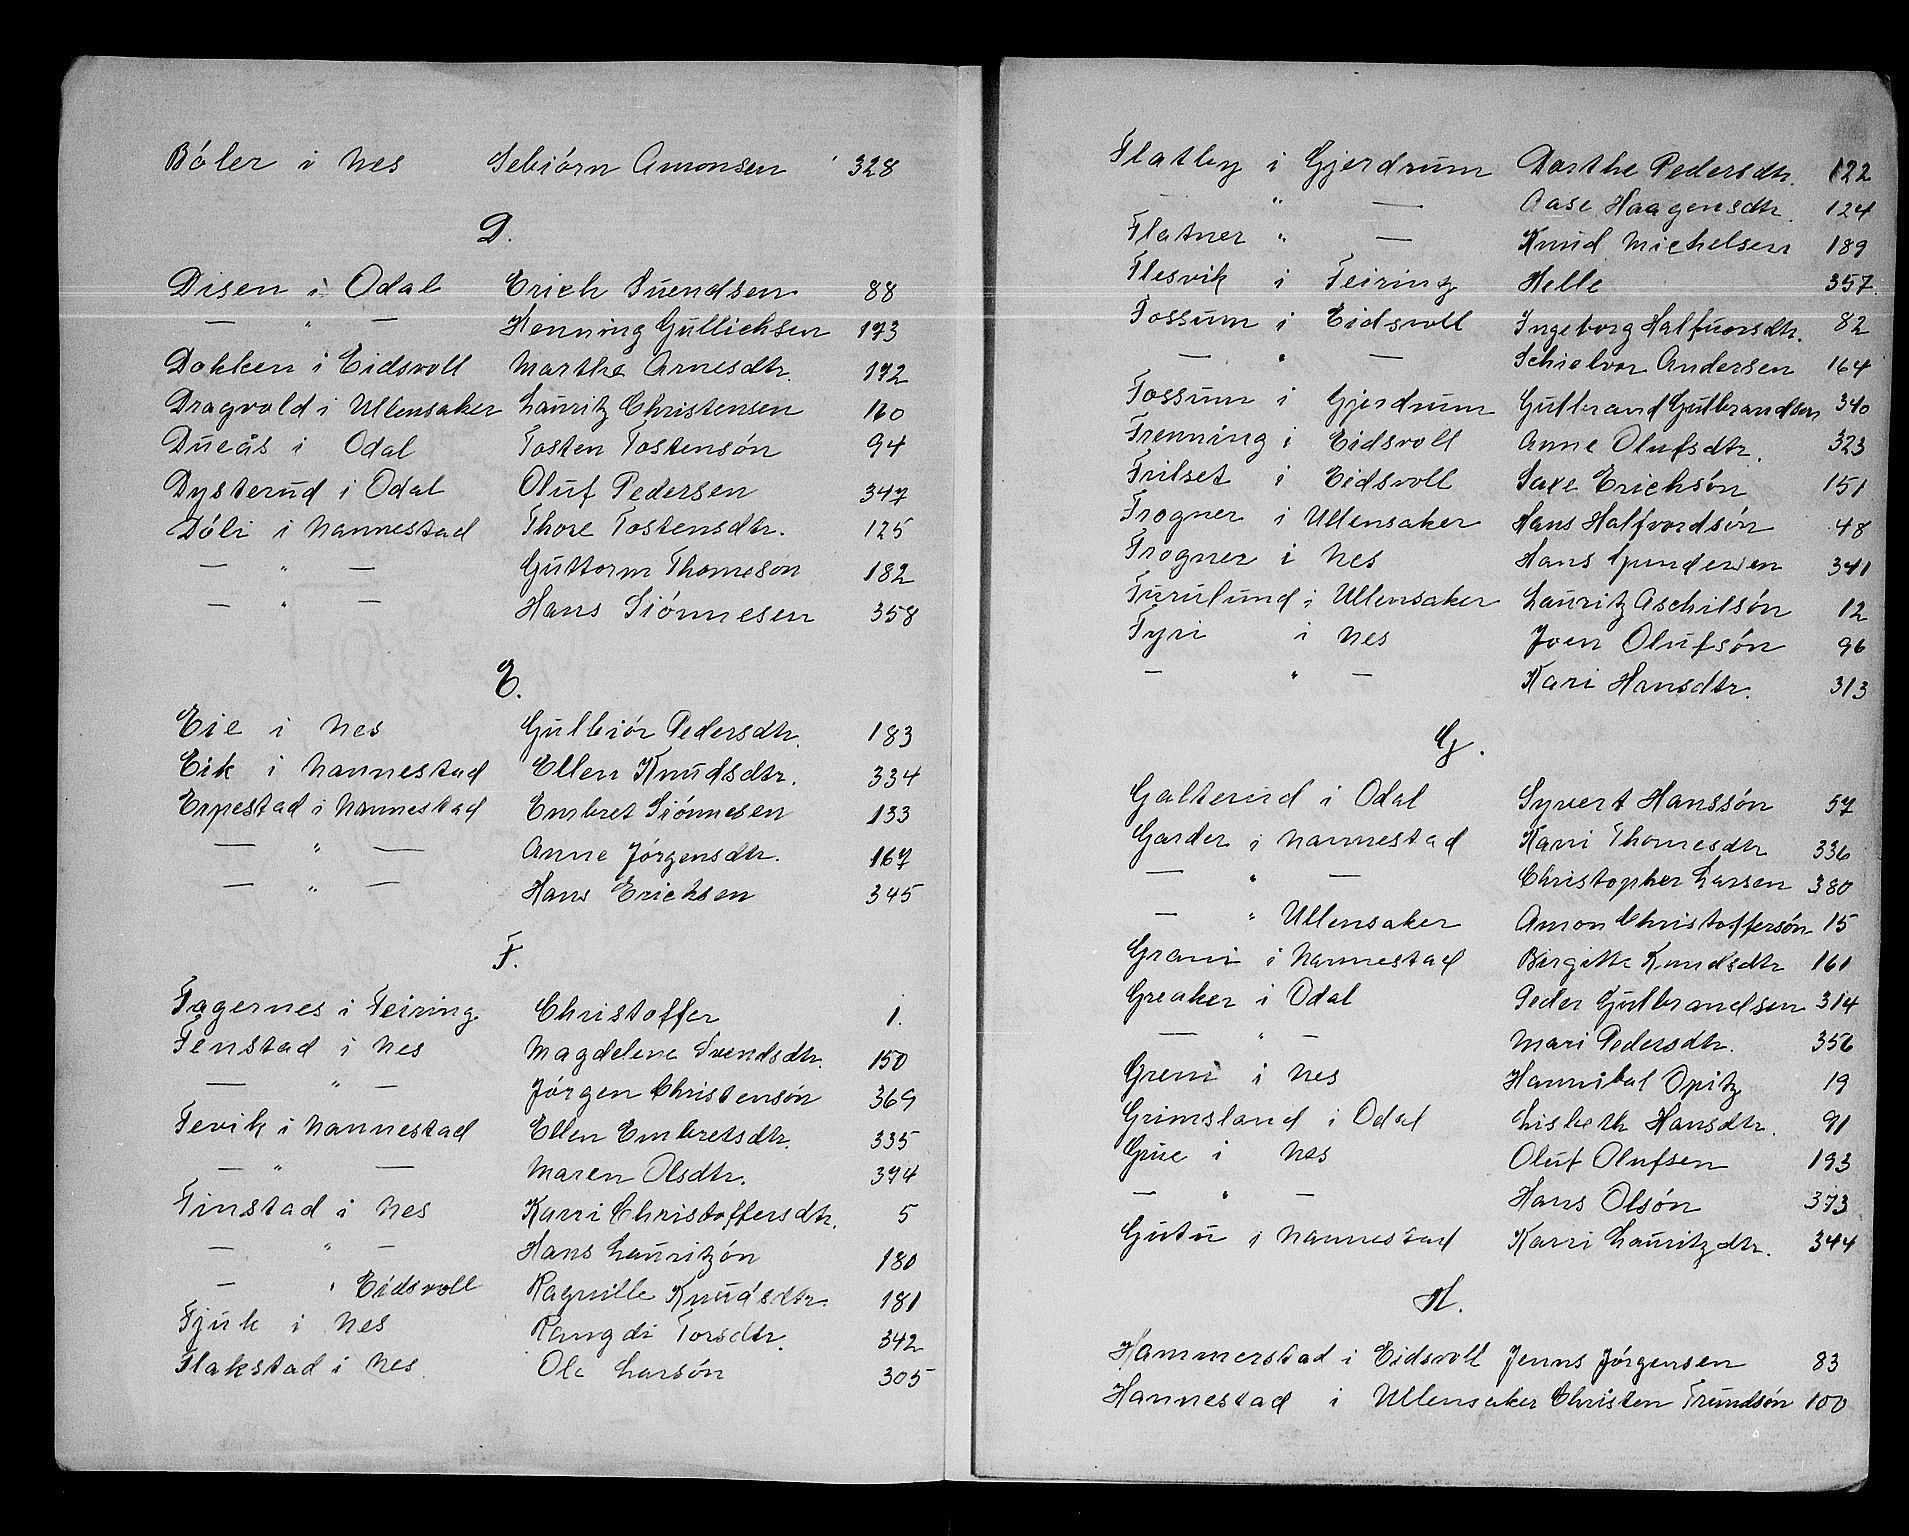 Bóler i Nes Sebiórn Amonsen 328
D.
Disen i Odal Erich Suendsen 88
— " — Henning Gullichsen 173
Dokken i Eidsvoll Marthe Arnesdtr. 172
Dragvold i Ullensaker Lauritz Christensen 160
Dueås i Odal Tosten Tostensón 94
Dysterud i Odal Oluf Pedersen 347
Dóli i Nannestad Thore Tostensdtr. 125
— " — Guttorm Thomesón 182
— " — Hans Siónnesen 358
E.
Eie i Nes Gulbiór Pedersdtr. 183
Eik i Nannestad Ellen Knudsdtr. 334
Erpestad i Nannestad Embret Siónnesen 133
— " — Anne Jórgensdtr. 167
— " — Hans Ericksen 345
F.
Fagernes i Feiring Christoffer 1.
Fenstad i Nes Magdelene Svendsdtr. 150
— " — Jórgen Christensón 369
Fevik i Nannestad Ellen Embretsdtr. 335
— " — Maren Olsdtr. 374
Finstad i Nes Karri Christoffersdtr. 5
— " — Hans Lauritzón 180
— " Eidsvoll Ragnille Knudsdtr. 181
Fjuk i Nes Rangdi Torsdtr. 342
Flakstad i Nes Ole Larsón 305
Flatby i Gjerdrum Dorthe Pedersdtr. 122
" — Aase Haagensdtr. 124
Flatner " — Knud Michelsen 189
Flesvik i Feiring Helle 357
Fossum i Eidsvoll Ingeborg Halfuorsdtr. 82
— " — Schielvor Andersen 164
Fossum i Gjerdrum Gulbrand Gulbrandsen 340
Frenning i Eidsvoll Anne Olufsdtr. 323
Frilset i Eidsvoll Saxe Ericksón 151
Frogner i Ullensaker Hans Halfvordsón 48
Frogner i Nes Hans Gundersen 341
Furulund i Ullensaker Lauritz Aschilsón 12
Fyri i Nes Joen Olufsón 96
— " — Kari Hansdtr. 313
G.
Galterud i Odal Syvert Hanssón 57
Garder i Nannestad Karri Thomesdtr 336
— " — Christopher Larsen 380
— " Ullensaker Amon Christoffersón 15
Grani i Nannestad Birgitte Knudsdtr 161
Greaker i Odal Peder Gulbrandsen 314
— " — Mari Pedersdtr. 356
Greni i Nes Hannibal Opitz 19
Grimsland i Odal Lisbeth Hansdtr. 91
Grue i Nes Oluf Olufsen 193
— " — Hans Olsón 373
Gutu i Nannestad Karri Lauritzdtr. 344
H.
Hammerstad i Eidsvoll Jenns Jórgensen 83
Hannestad i Ullensaker Christen Trundsón 100